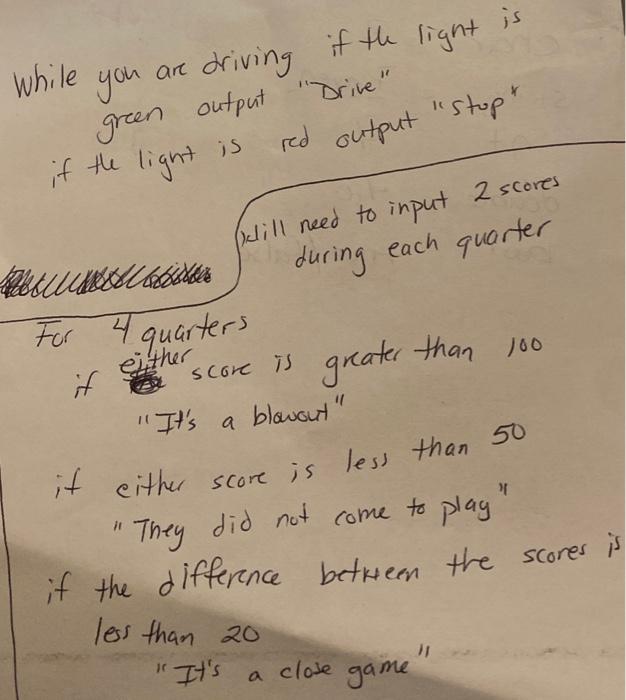 While you are driving if the light is
green output "Drive"
if the light is red output "stop"
Will need to input 2 scores
during each quarter
For 4 quarters
if either score is greater than 100
"It's a blowout"
if either score is less than 50
"They did not come to play"
if the difference between the scores is
less than 20
"It's a close game"